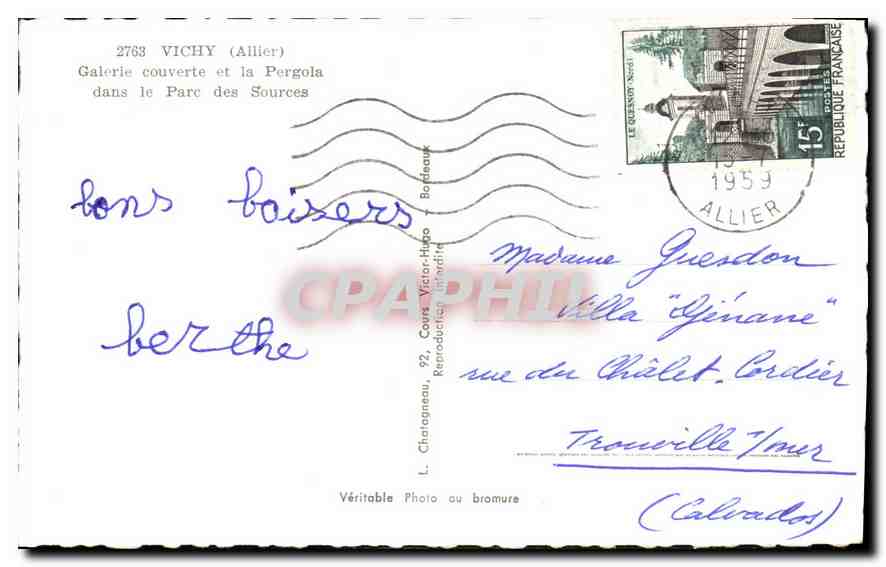 2763 VICHY (Allier)
Galerie couverte et la Pergola
dans le Parc des Sources
LE QUESNOY (Nord)
15F
POSTES
REPUBLIQUE FRANÇAISE
1959
ALLIER
bons baisers
berthe
L. Chatagneau, 92, Cours Victor-Hugo - Bordeaux
Reproduction Interdite
CPAPHIL
Madame Guesdon
Villa "Djénane"
rue du Châlet-Cordier
Trouville s/mer
(Calvados)
Véritable Photo au bromure